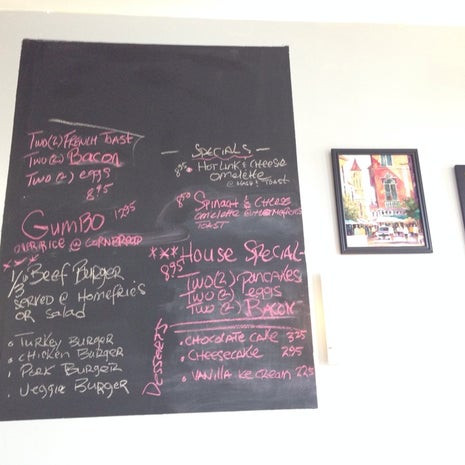 Two(2) French Toast
Two(2) Bacon
Two(2) eggs
8.95
Gumbo 12.95
over rice @ cornbread
***
1/3 lb Beef Burger
served @ Homefries
or salad
• Turkey Burger
• Chicken Burger
• Pork Burger
• Veggie Burger
— Specials —
8.95 • Hot Link & Cheese
omelette
@ Toast
8.50 Spinach & Cheese
omelette @ Homefries
Toast
*** House Special
8.95 Two(2) pancakes
Two(2) eggs
Two(2) Bacon
Desserts
• Chocolate Cake 3.25
• Cheesecake 2.95
• Vanilla Ice Cream 2.25